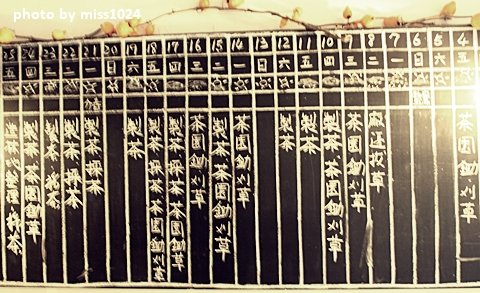 photo by miss1024
4 五 茶園鋤刈草
5 六
6 日
7 一
8 二 草
9 三 茶園鋤刈草
10 四 製茶.茶園鋤刈草
11 五 製茶
12 六 製茶
13 日
14 一 茶園鋤刈草
15 二 製茶 茶園鋤刈草
16 三 茶園鋤刈草
17 四 製茶 採茶 茶園鋤刈草
18 五 製茶 採茶 茶園鋤刈草
19 六 製茶
20 日
21 一 製茶 採茶
22 二 製茶 採茶
23 三 製茶 採茶
24 四 製茶 茶園鋤刈草
25 五 造林地整理 採茶